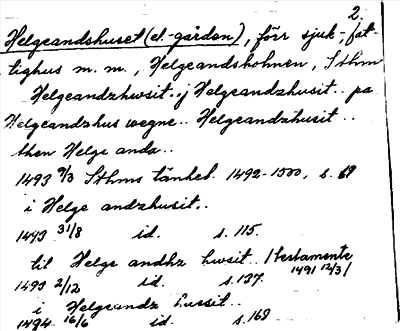 2.
Helgeandshuset (el. -gården), förr sjuk-, fat-
tighus m. m., Helgeandsholmen, Sthm
Helgeandzhwsit.. j Helgeandzhusit.. pa
Helgeandzhus wegne.. Helgeandzhusit..
then Helge anda..
1493 9/3 Sthms tänkeb. 1492-1500, s. 69
i Helge andzhusit..
1493 31/8 id. s. 115.
til Helge andhz hwsit.. /testamente
1491 12/3/
1493 2/12 id. s. 137.
i Helgeandz husit..
1494 16/6 id. s. 168